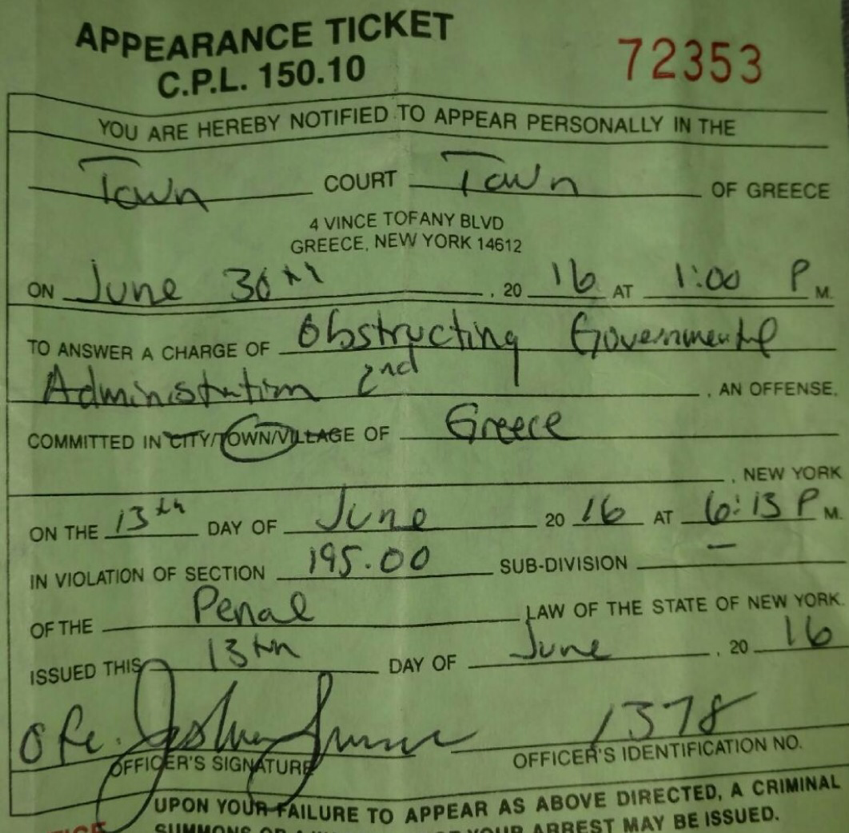 APPEARANCE TICKET
C.P.L. 150.10
72353
YOU ARE HEREBY NOTIFIED TO APPEAR PERSONALLY IN THE
Town COURT Town OF GREECE
4 VINCE TOFANY BLVD
GREECE, NEW YORK 14612
ON June 30th, 20 16 AT 1:00 P M.
TO ANSWER A CHARGE OF Obstructing Governmental
Administration 2nd, AN OFFENSE,
COMMITTED IN CITY/TOWN/VILLAGE OF Greece
, NEW YORK
ON THE 13th DAY OF June 20 16 AT 6:13 P M.
IN VIOLATION OF SECTION 195.00 SUB-DIVISION —
OF THE Penal LAW OF THE STATE OF NEW YORK.
ISSUED THIS 13th DAY OF June, 20 16
Ofc. Joshua 1378
OFFICER'S SIGNATURE OFFICER'S IDENTIFICATION NO.
UPON YOUR FAILURE TO APPEAR AS ABOVE DIRECTED, A CRIMINAL
SUMMONS OR YOUR ARREST MAY BE ISSUED.